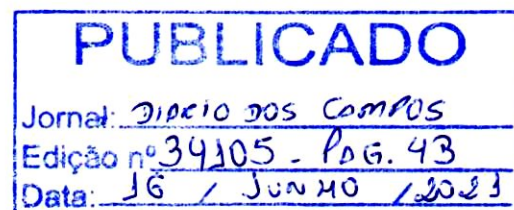 PUBLICADO
Jornal: DIÁRIO DOS CAMPOS
Edição nº 34105 - PÁG. 43
Data: 16 / JUNHO / 2021